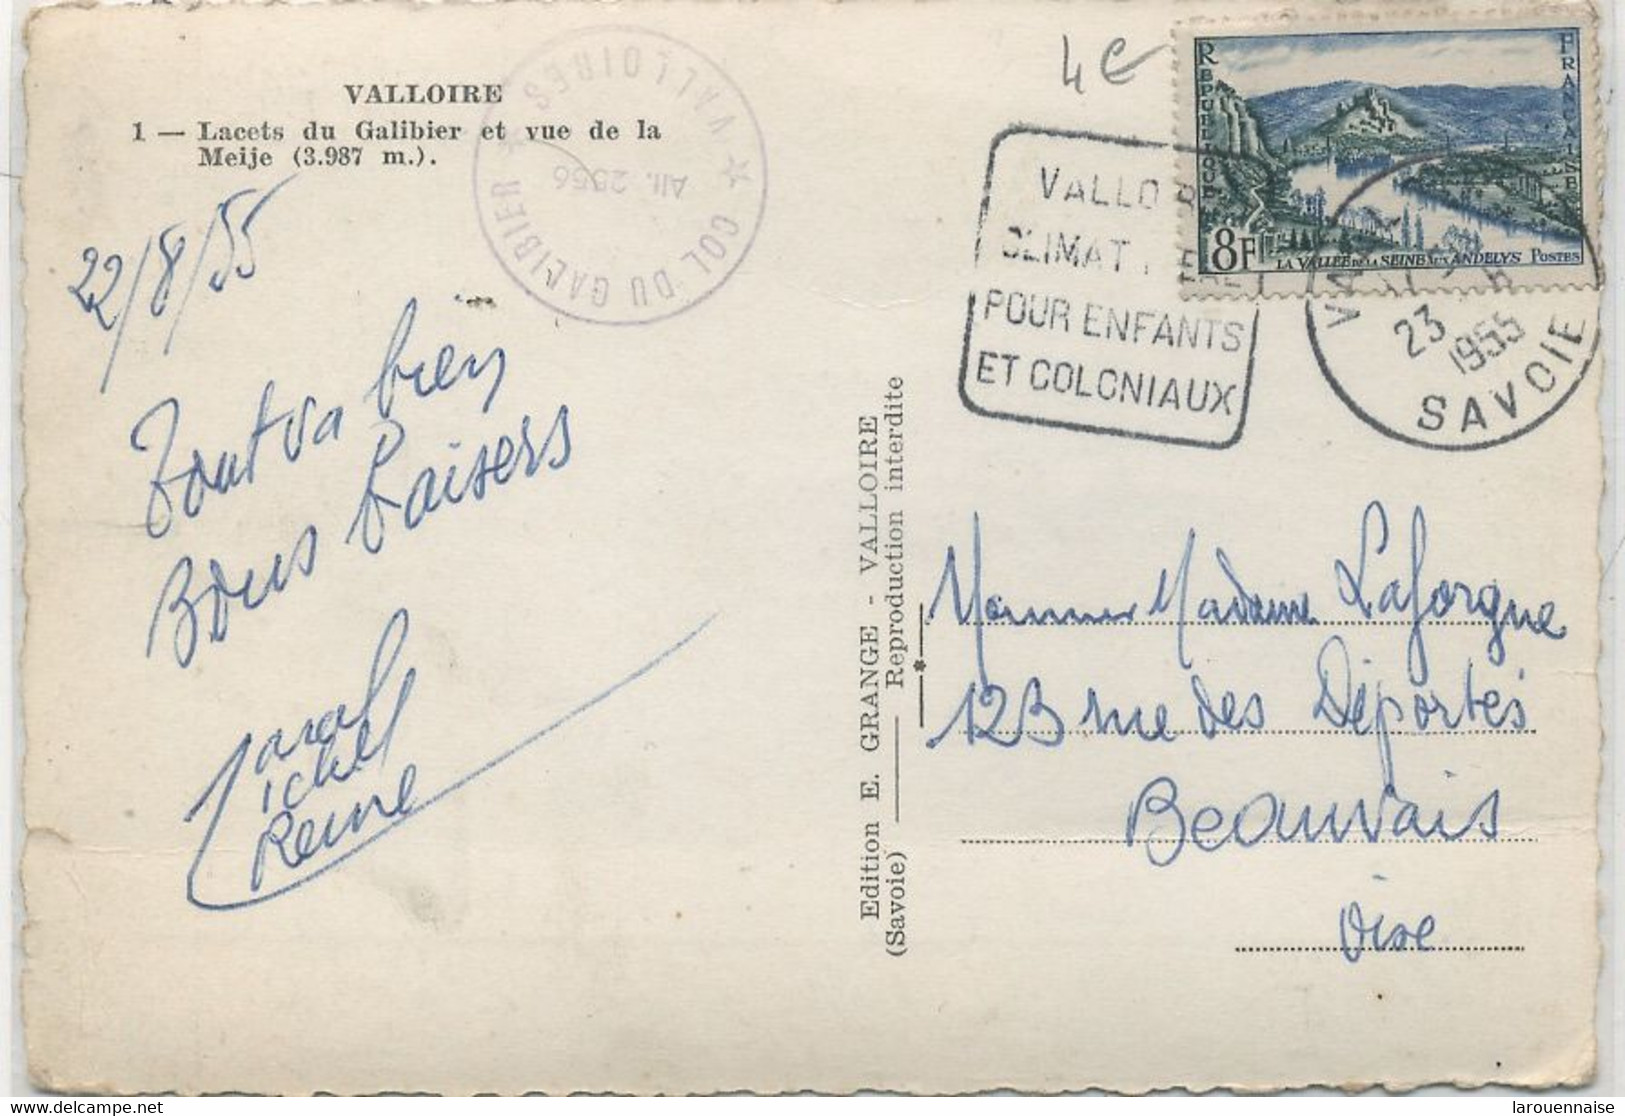 VALLOIRE
1 — Lacets du Galibier et vue de la
Meije (3.987 m.).
★ COL DU GALIBIER ★ VALLOIRES
Alt. 2556
22/8/55
Tout va bien
Bons baisers
Reine
Edition E. GRANGE - VALLOIRE
(Savoie) — Reproduction interdite
4€
REPUBLIQUE FRANCAISE
8F
LA VALLEE DE LA SEINE AUX ANDELYS POSTES
VALLO
CLIMAT
POUR ENFANTS
ET COLONIAUX
23
1955
SAVOIE
Monsieur Madame Laforgue
123 rue des Déportés
Beauvais
Oise
larouennaise